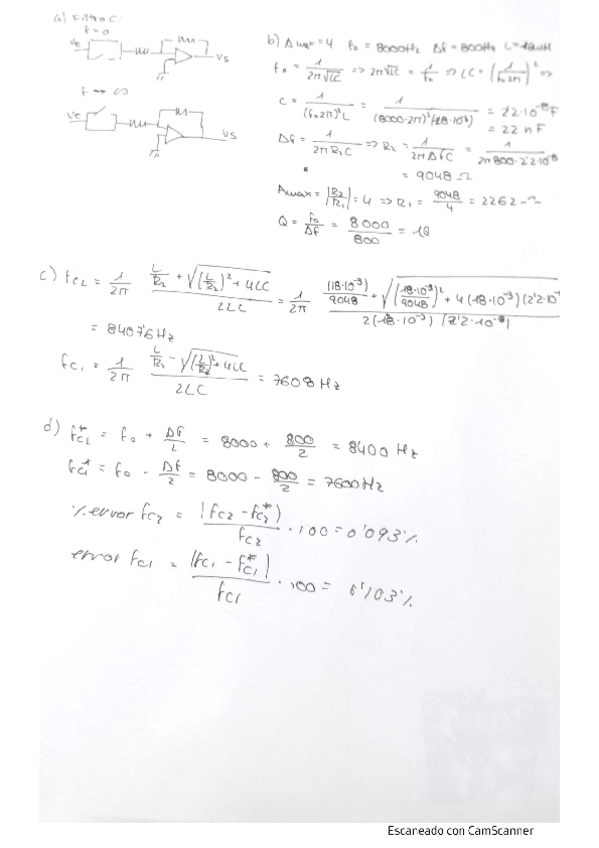 a) Filtro C:
f = 0
Ve
Vs
f → ∞
Ve
Vs
b) Amax = 4 f₀ = 8000Hz Δf = 800Hz L = 18mH
f₀ = 1/(2π√LC) => 2π√LC = 1/f₀ => LC = (1/(f₀2π))² =>
C = 1/((f₀2π)²L) = 1/((8000·2π)²(18·10⁻³)) = 2'2·10⁻⁸F
= 22 nF
Δf = 1/(2πR₂C) => R₂ = 1/(2πΔfC) = 1/(2π800·2'2·10⁻⁸)
= 9048 Ω
Amax = |R₂/R₁| = 4 => R₁ = 9048/4 = 2262 Ω
Q = f₀/Δf = 8000/800 = 10
c) fc₂ = 1/2π (L/R₂ + √((L/R₂)² + 4LC))/2LC = 1/2π ((18·10⁻³)/9048 + √(((18·10⁻³)/9048)² + 4(18·10⁻³)(2'2·10⁻))/(2(18·10⁻³)(2'2·10⁻⁸))
= 8407'6 Hz
fc₁ = 1/2π (L/R₂ - √((L/R₂)² + 4LC))/2LC = 7608 Hz
d) fc₂* = f₀ + Δf/2 = 8000 + 800/2 = 8400 Hz
fc₁* = f₀ - Δf/2 = 8000 - 800/2 = 7600 Hz
% error fc₂ = |fc₂ - fc₂*|/fc₂ · 100 = 0'093%
error fc₁ = |fc₁ - fc₁*|/fc₁ · 100 = 0'103%
Escaneado con CamScanner